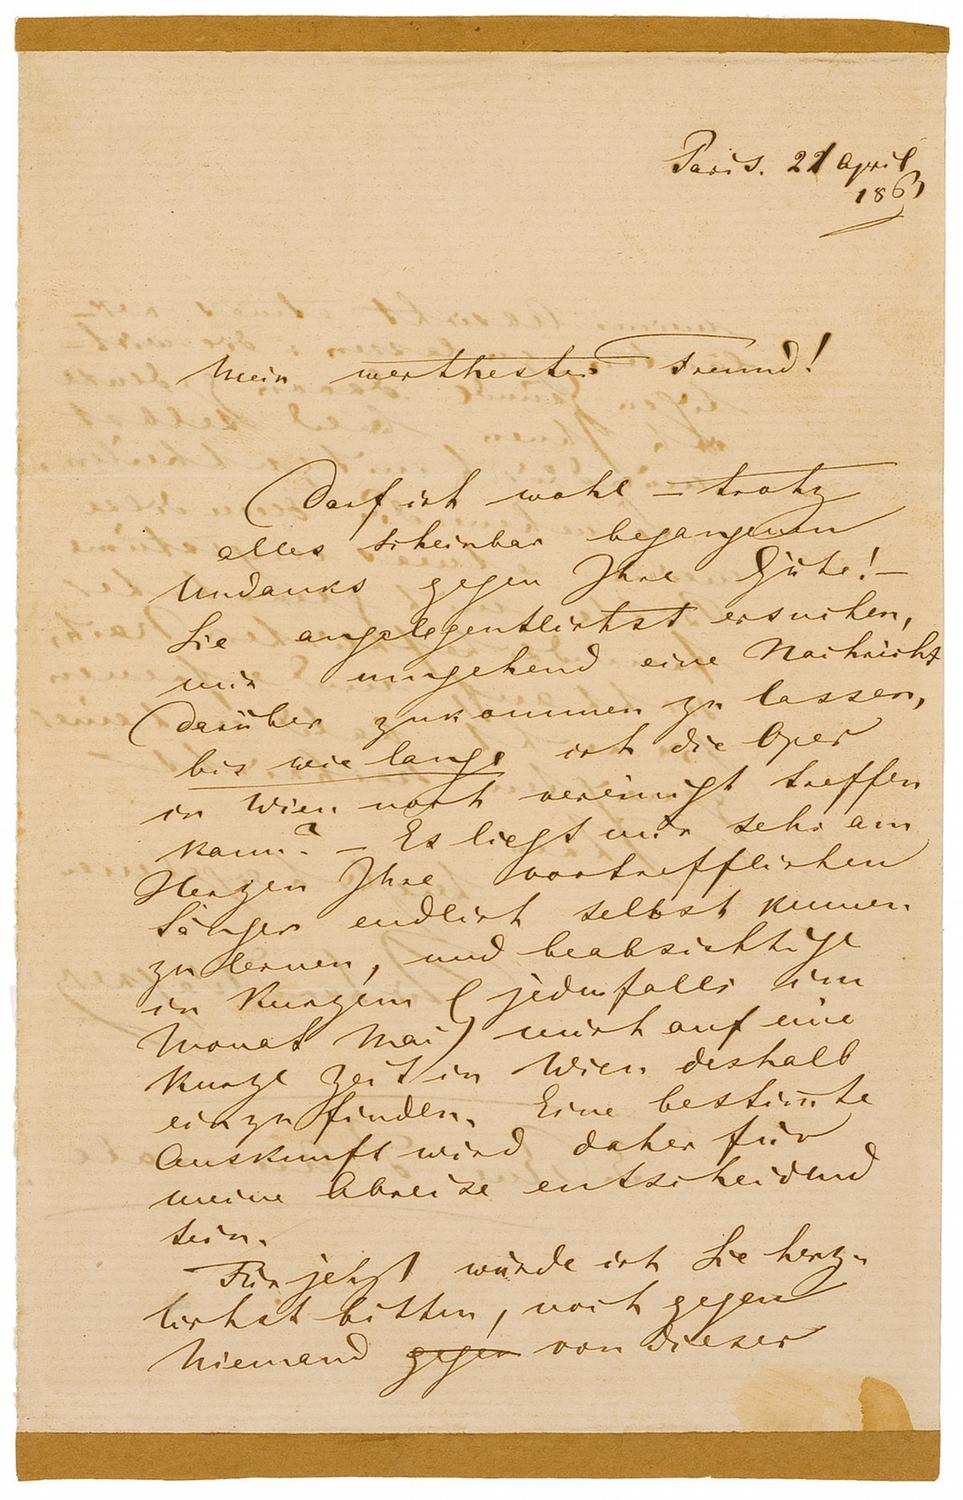 Paris. 21 April
1861
Mein werthester Freund!
Darf ich wohl – trotz
alles scheinbar begangenen
Undanks gegen Ihre Güte! –
Sie angelegentlichst ersuchen,
mir umgehend eine Nachricht
darüber zukommen zu lassen,
bis wie lange ich die Oper
in Wien noch vereinigt treffen
kann? – Es liegt mir sehr am
Herzen Ihre vortrefflichen
Sänger endlich selbst kennen
zu lernen, und beabsichtige
in Kurzem (jedenfalls im
Monat Mai) mich auf eine
kurze Zeit in Wien deshalb
einzufinden. Eine bestim̄te
Auskunft wird daher für
meine Abreise entscheidend
sein.
Für jetzt würde ich Sie herz-
lichst bitten, noch gegen
Niemand gegen von dieser